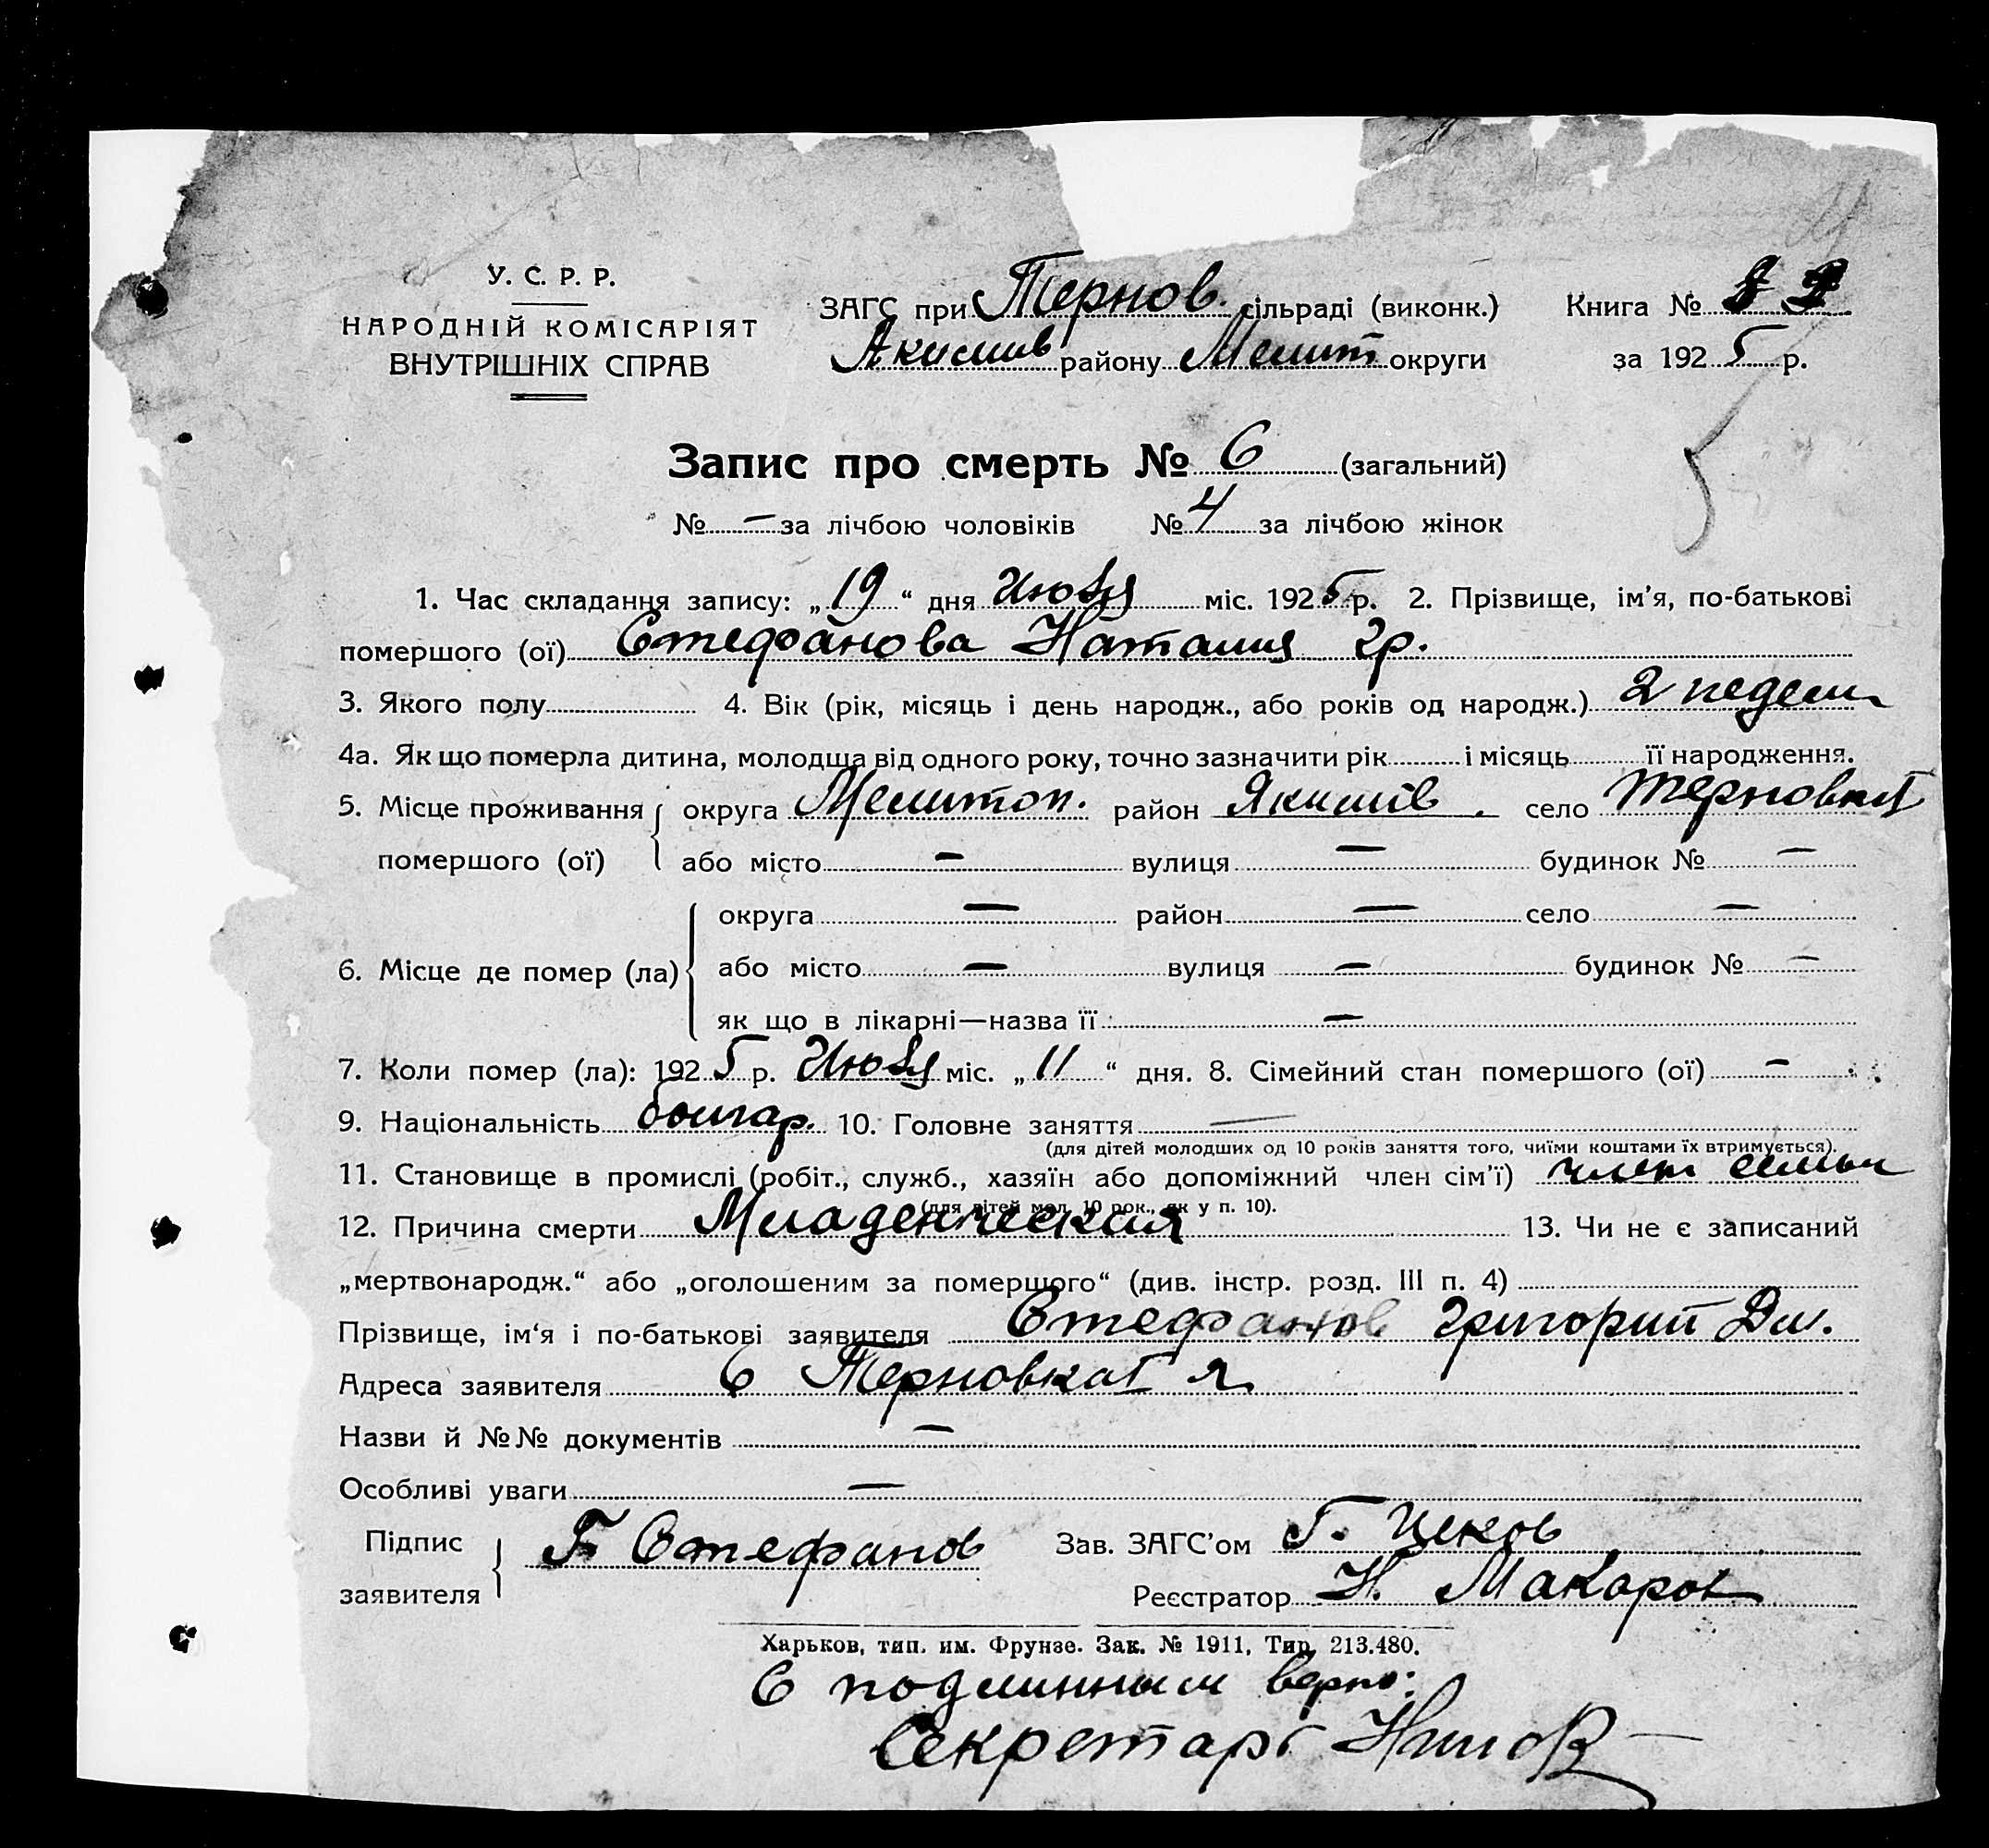 У. С. Р. Р.
НАРОДНІЙ КОМІСАРІЯТ
ВНУТРІШНІХ СПРАВ
ЗАГС при Тернов. сільраді (виконк.) Книга №
Акимив району Мелит округи за 1925 р.
Запис про смерть № 6 (загальний)
№ — за лічбою чоловіків № 4 за лічбою жінок
1. Час складання запису: „19“ дня Июля міс. 1925 р. 2. Прізвище, ім’я, по-батькові
помершого (ої) Стефанова Наталия Гр.
3. Якого полу 4. Вік (рік, місяць і день народж., або років од народж.) 2 недели
4а. Як що померла дитина, молодща від одного року, точно зазначити рік і місяць її народження.
5. Місце проживання округа Мелитоп. район Якимів. село Терновка I
помершого (ої) або місто — вулиця — будинок № —
округа — район — село —
6. Місце де помер (ла) або місто — вулиця — будинок № —
як що в лікарні—назва її —
7. Коли помер (ла): 1925 р. Июля міс. „11“ дня. 8. Сімейний стан помершого (ої) —
9. Національність болгар. 10. Головне заняття —
(для дітей молодших од 10 років заняття того, чиїми коштами їх втримується).
11. Становище в промислі (робіт., служб., хазяїн або допоміжний член сім’ї) член семьи
(для дітей мол. 10 рок., як у п. 10).
12. Причина смерти Младенческая 13. Чи не є записаний
„мертвонародж.“ або „оголошеним за померщого“ (див. інстр. розд. III п. 4)
Прізвище, ім‘я і по-батькові заявителя Стефанов Григорий
Адреса заявителя С Терновка I я
Назви й №№ документів —
Особливі уваги —
Підпис заявителя Г. Стефанов Зав. ЗАГС’ом Г. Цеков
Реєстратор Н. Макаров
Харьков, тип. им. Фрунзе. Зак. № 1911, Тир. 213.480.
С подлинным верно:
Секретарь